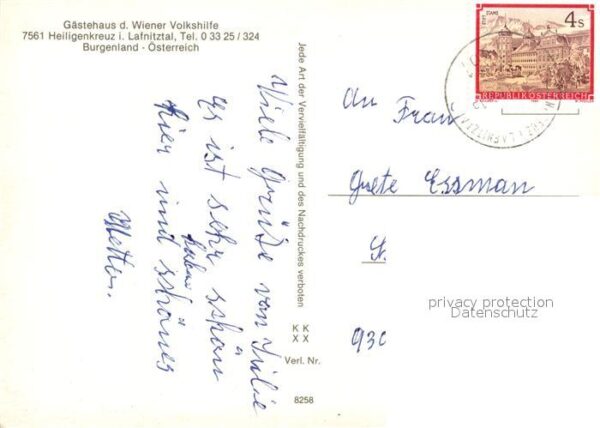 Gästehaus d. Wiener Volkshilfe
7561 Heiligenkreuz i. Lafnitztal, Tel. 0 33 25 / 324
Burgenland - Österreich
Viele Grüße von Julie
Es ist sehr schön
hier und haben schönes
Wetter.
Jede Art der Vervielfältigung und des Nachdruckes verboten
KK
XX
Verl. Nr.
8258
STIFT STAMS
4 S
REPUBLIK ÖSTERREICH
An Frau
Grete Essman
St.
930
privacy protection
Datenschutz